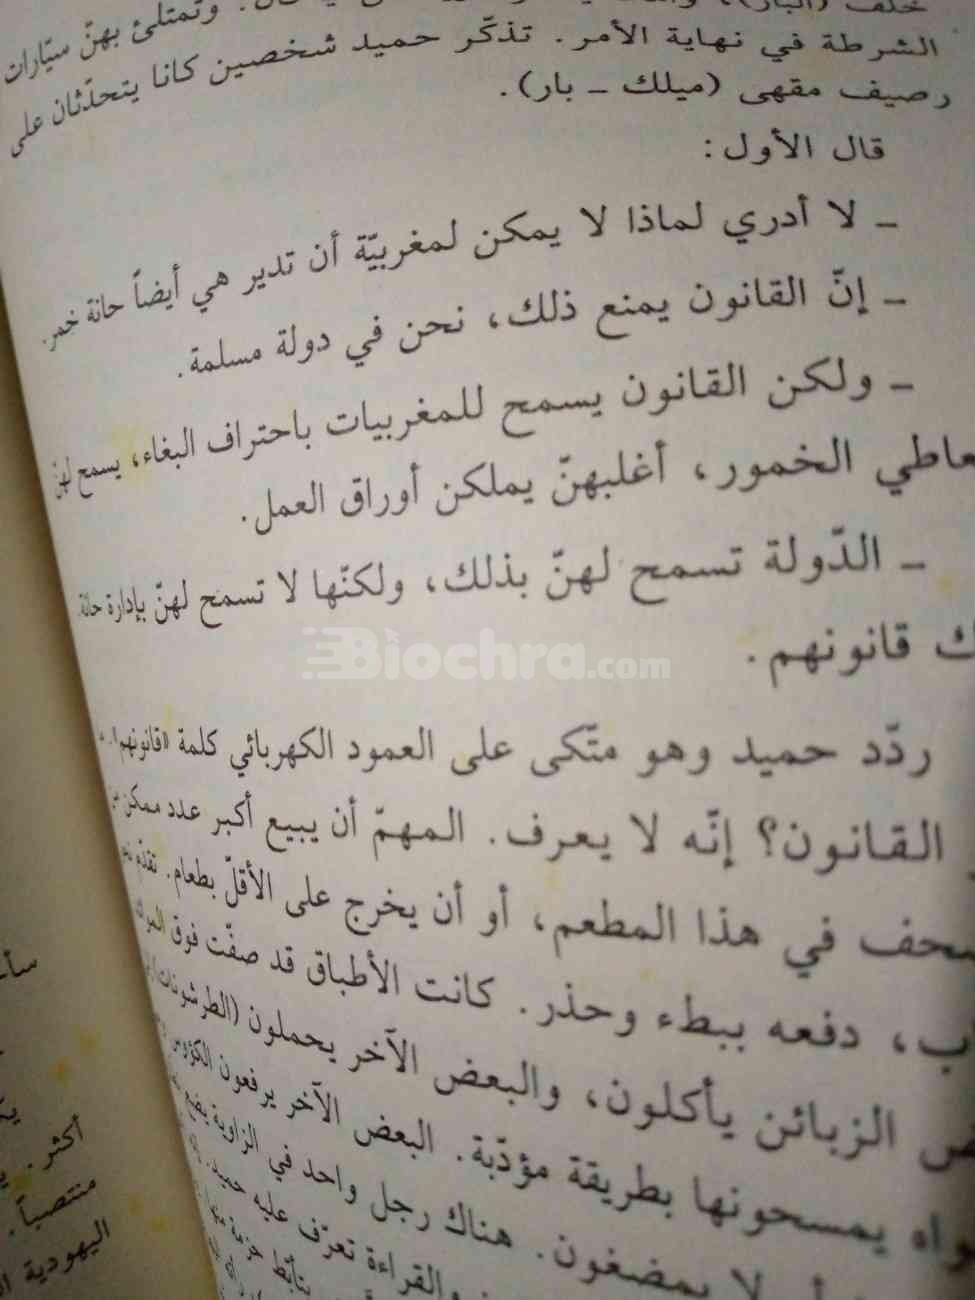 خلف (البار)، وتمتلئ بهنّ سيّارات
الشرطة في نهاية الأمر. تذكّر حميد شخصين كانا يتحدّثان على
رصيف مقهى (ميلك - بار).
قال الأول:
- لا أدري لماذا لا يمكن لمغربيّة أن تدير هي أيضاً حانة خمر.
- إنّ القانون يمنع ذلك، نحن في دولة مسلمة.
- ولكن القانون يسمح للمغربيات باحتراف البغاء، يسمح لهنّ
عاطي الخمور، أغلبهنّ يملكن أوراق العمل.
- الدّولة تسمح لهنّ بذلك، ولكنّها لا تسمح لهنّ بإدارة حانة.
ك قانونهم.
Biochra.com
ردّد حميد وهو متّكى على العمود الكهربائي كلمة «قانونهم».
القانون؟ إنّه لا يعرف. المهمّ أن يبيع أكبر عدد ممكن من
حف في هذا المطعم، أو أن يخرج على الأقلّ بطعام. تقدّم
ب، دفعه ببطء وحذر. كانت الأطباق قد صفّت فوق
الزبائن يأكلون، والبعض الآخر يحملون (الطرشونات)
يمسحونها بطريقة مؤدّبة. البعض الآخر يرفعون الكؤوس
لا يمضغون. هناك رجل واحد في الزاوية يضع
والقراءة تعرّف عليه حميد.
يتأبّط حزمة
سأ
أكثر.
منتصباً.
اليهودية